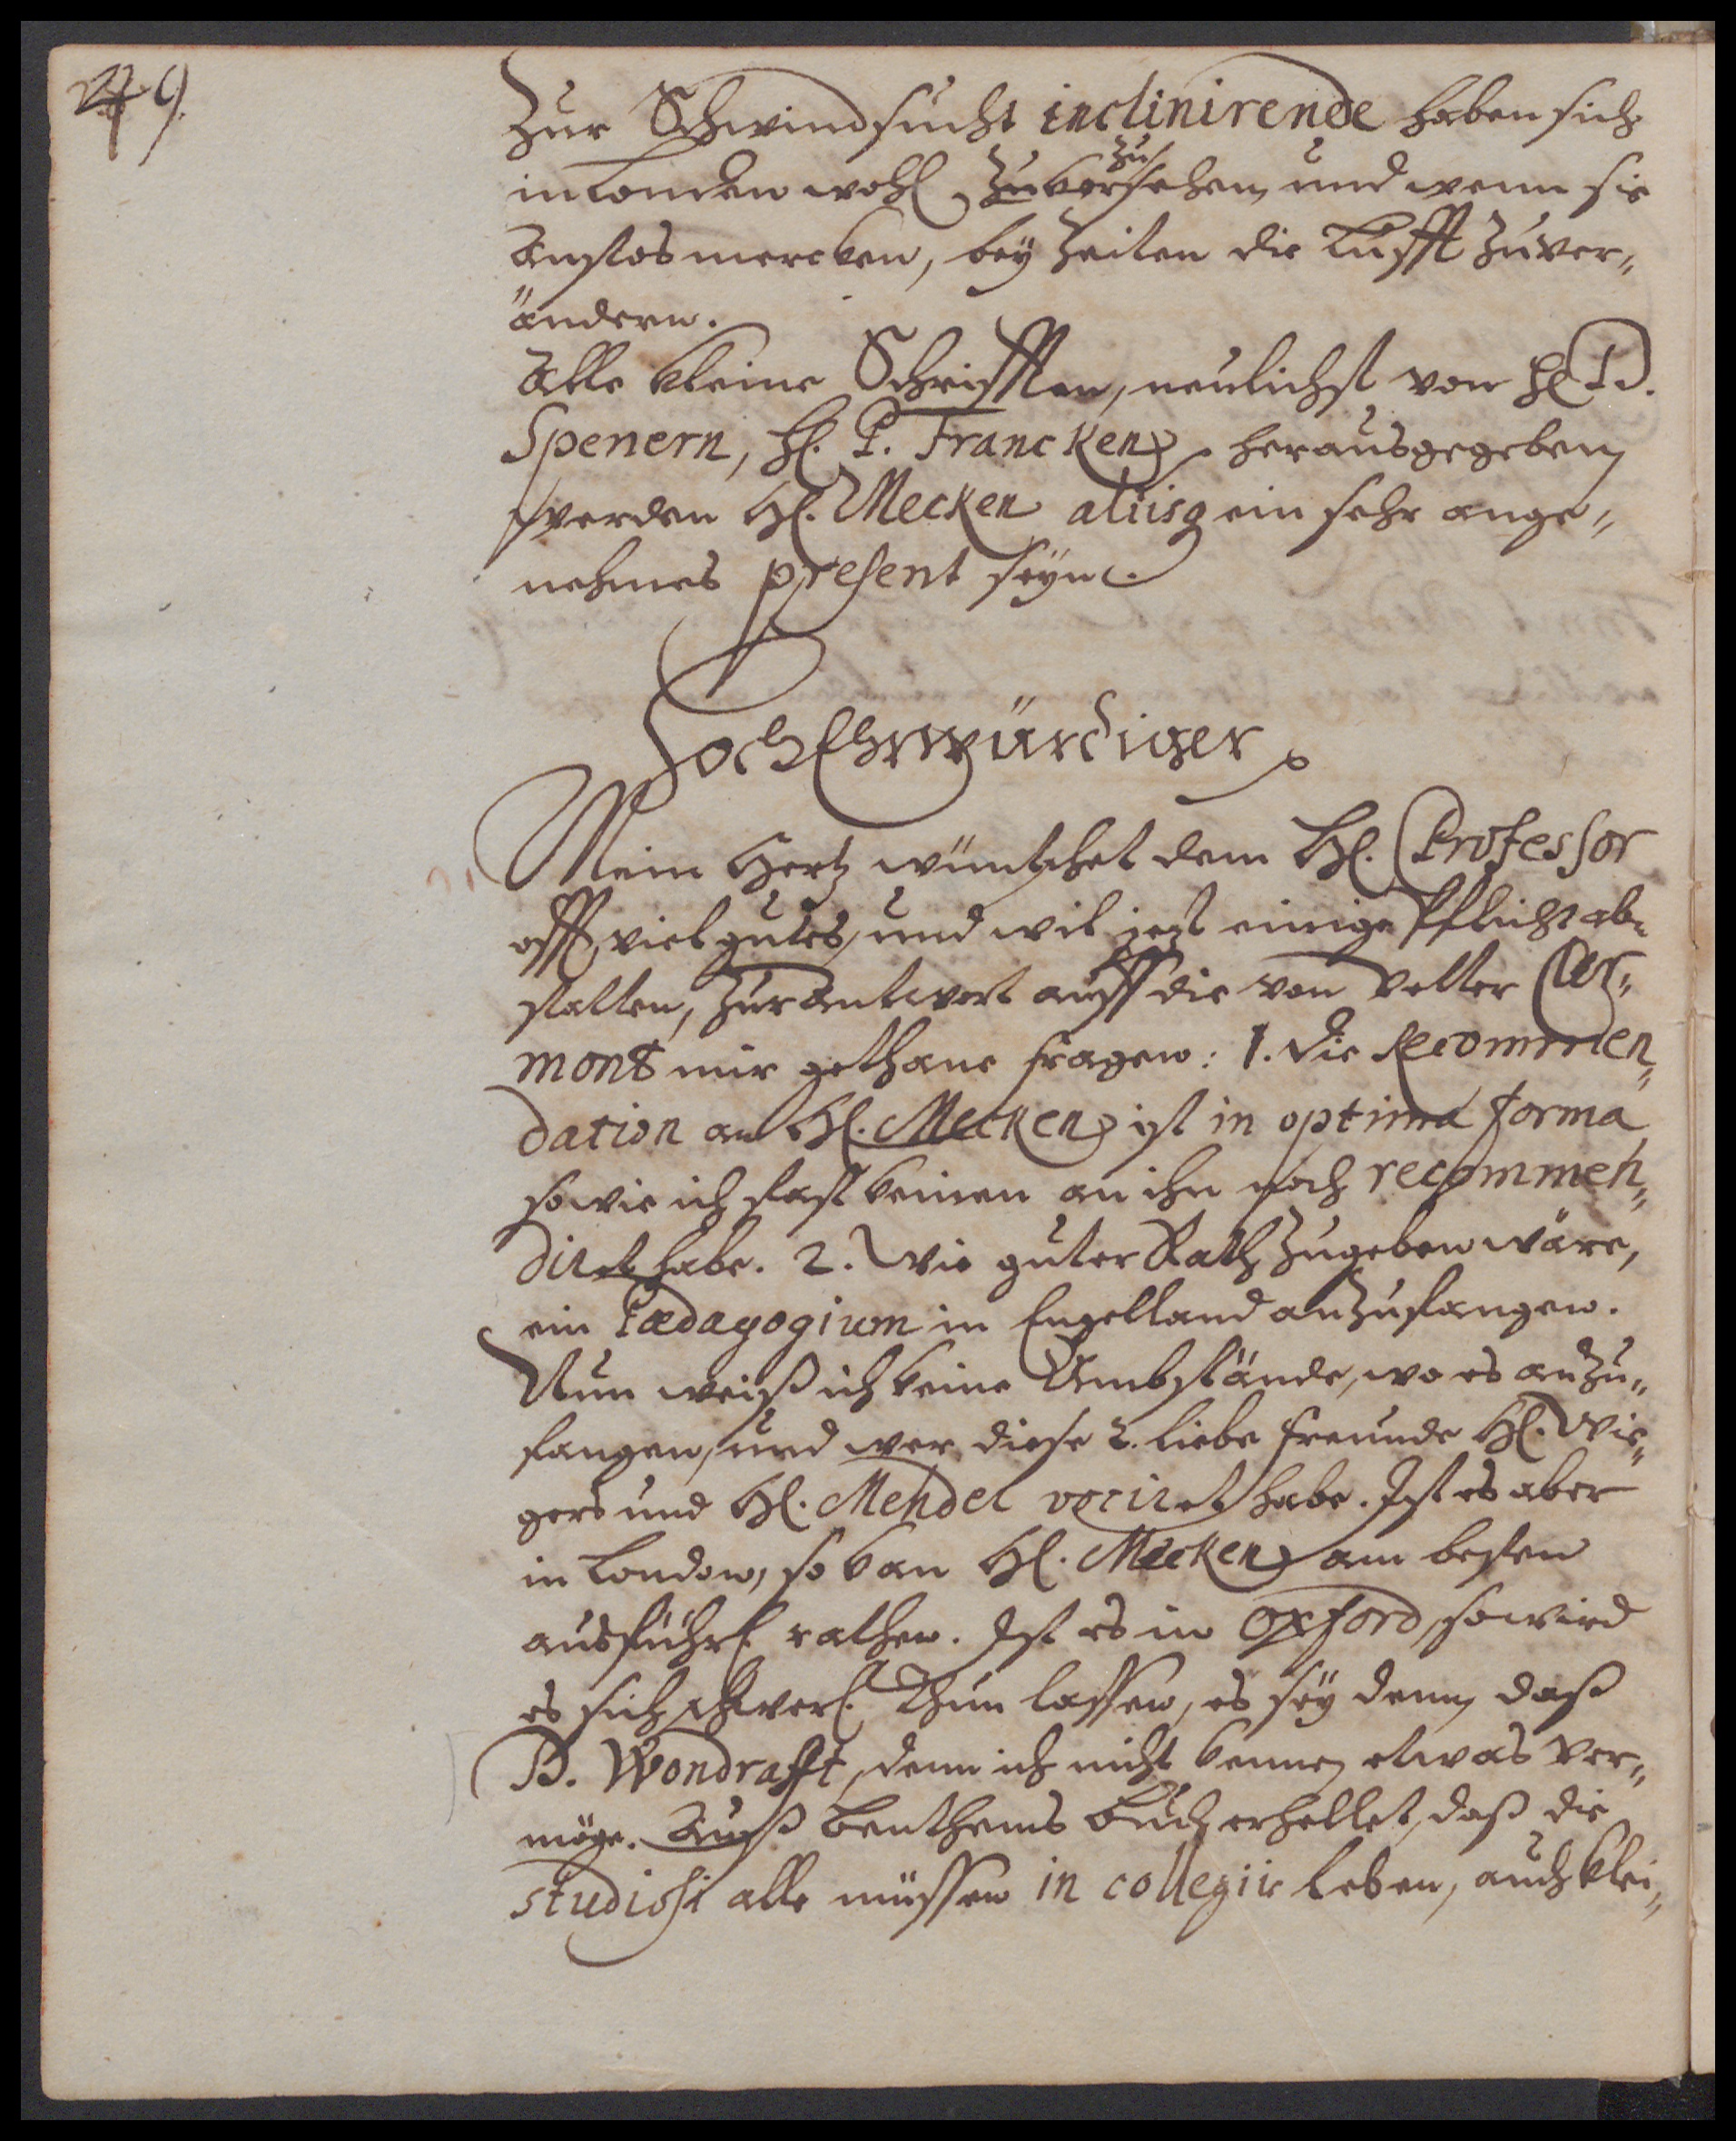 249.
Zur Schwindsucht inclinirende haben sich
in Londen wohl zuver zu sehen, und wenn sie
Anstos mercken, bey Zeiten die Lufft zuver„
ändern.
Alle kleine Schrifften, neulichst von H. D.
Spenern, H. P. Francken, herausgegeben,
werden H. Mecken aliisq ein sehr ange„
nehmes present seyn.
HochEhrwürdiger
Mein Hertz wüntschet dem H. Professor
offt viel gutes, und wil jezt einige Pflicht ab„
statten, zur Antwort auff die von Vetter Cler„
mont mir gethane fragen: 1. die Recommen„
dation an H. Mecken ist in optima forma
sowie ich fast keinen an ihn noch recommen„
diret habe. 2. Wie guter Rath zugeben wäre,
ein Pædagogium in Engelland anzufangen.
Nun weiß ich keine Umbstände, wo es anzu„
fangen, und wer diese 2. liebe freunde H. Wie„
gers und H. Mehdel vociret habe. Ist es aber
in London, so kan H. Mecken am besten
ausführl. rathen. Ist es in Oxford, so wird
es sich schwerl. thun lassen, es sey denn, daß
D. Wondrafft, denn ich nicht kenne, etwas ver„
möge. Auß Benthems Buch erhellet, daß die
studiosi alle müssen in collegiis leben, auch klei„